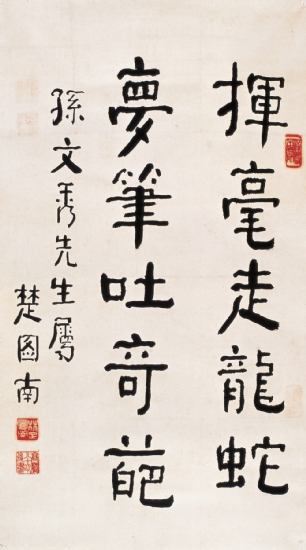 揮毫走龍蛇
夢筆吐奇葩
孫文秀先生屬
楚图南